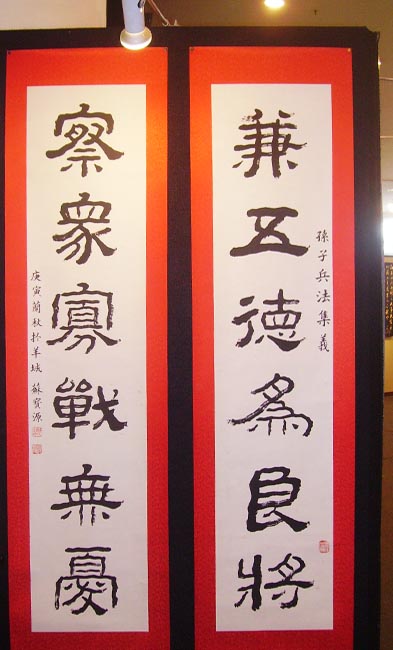 兼五德為良將
孫子兵法集義
察眾寡戰無憂
庚寅蘭秋於羊城 蘇賓源